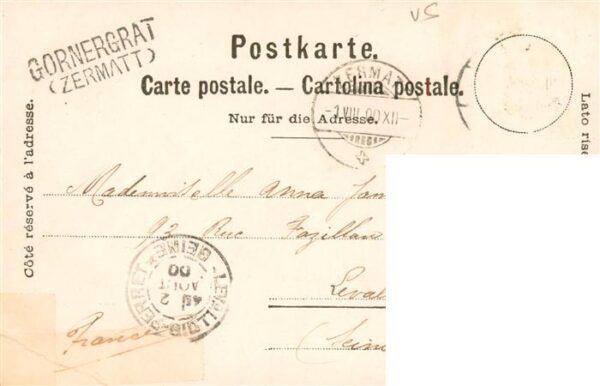 VS
GORNERGRAT
(ZERMATT)
Postkarte.
Carte postale. — Cartolina postale.
Nur für die Adresse.
ZERMATT
-1 VIII 00 XII-
Côté réservé à l'adresse.
Lato rise
Mademoiselle Anna Jam
92 Rue Fazillau
Leval
(Seine
France
LEVALLOIS-PERRET
2
AOUT
00
SEINE